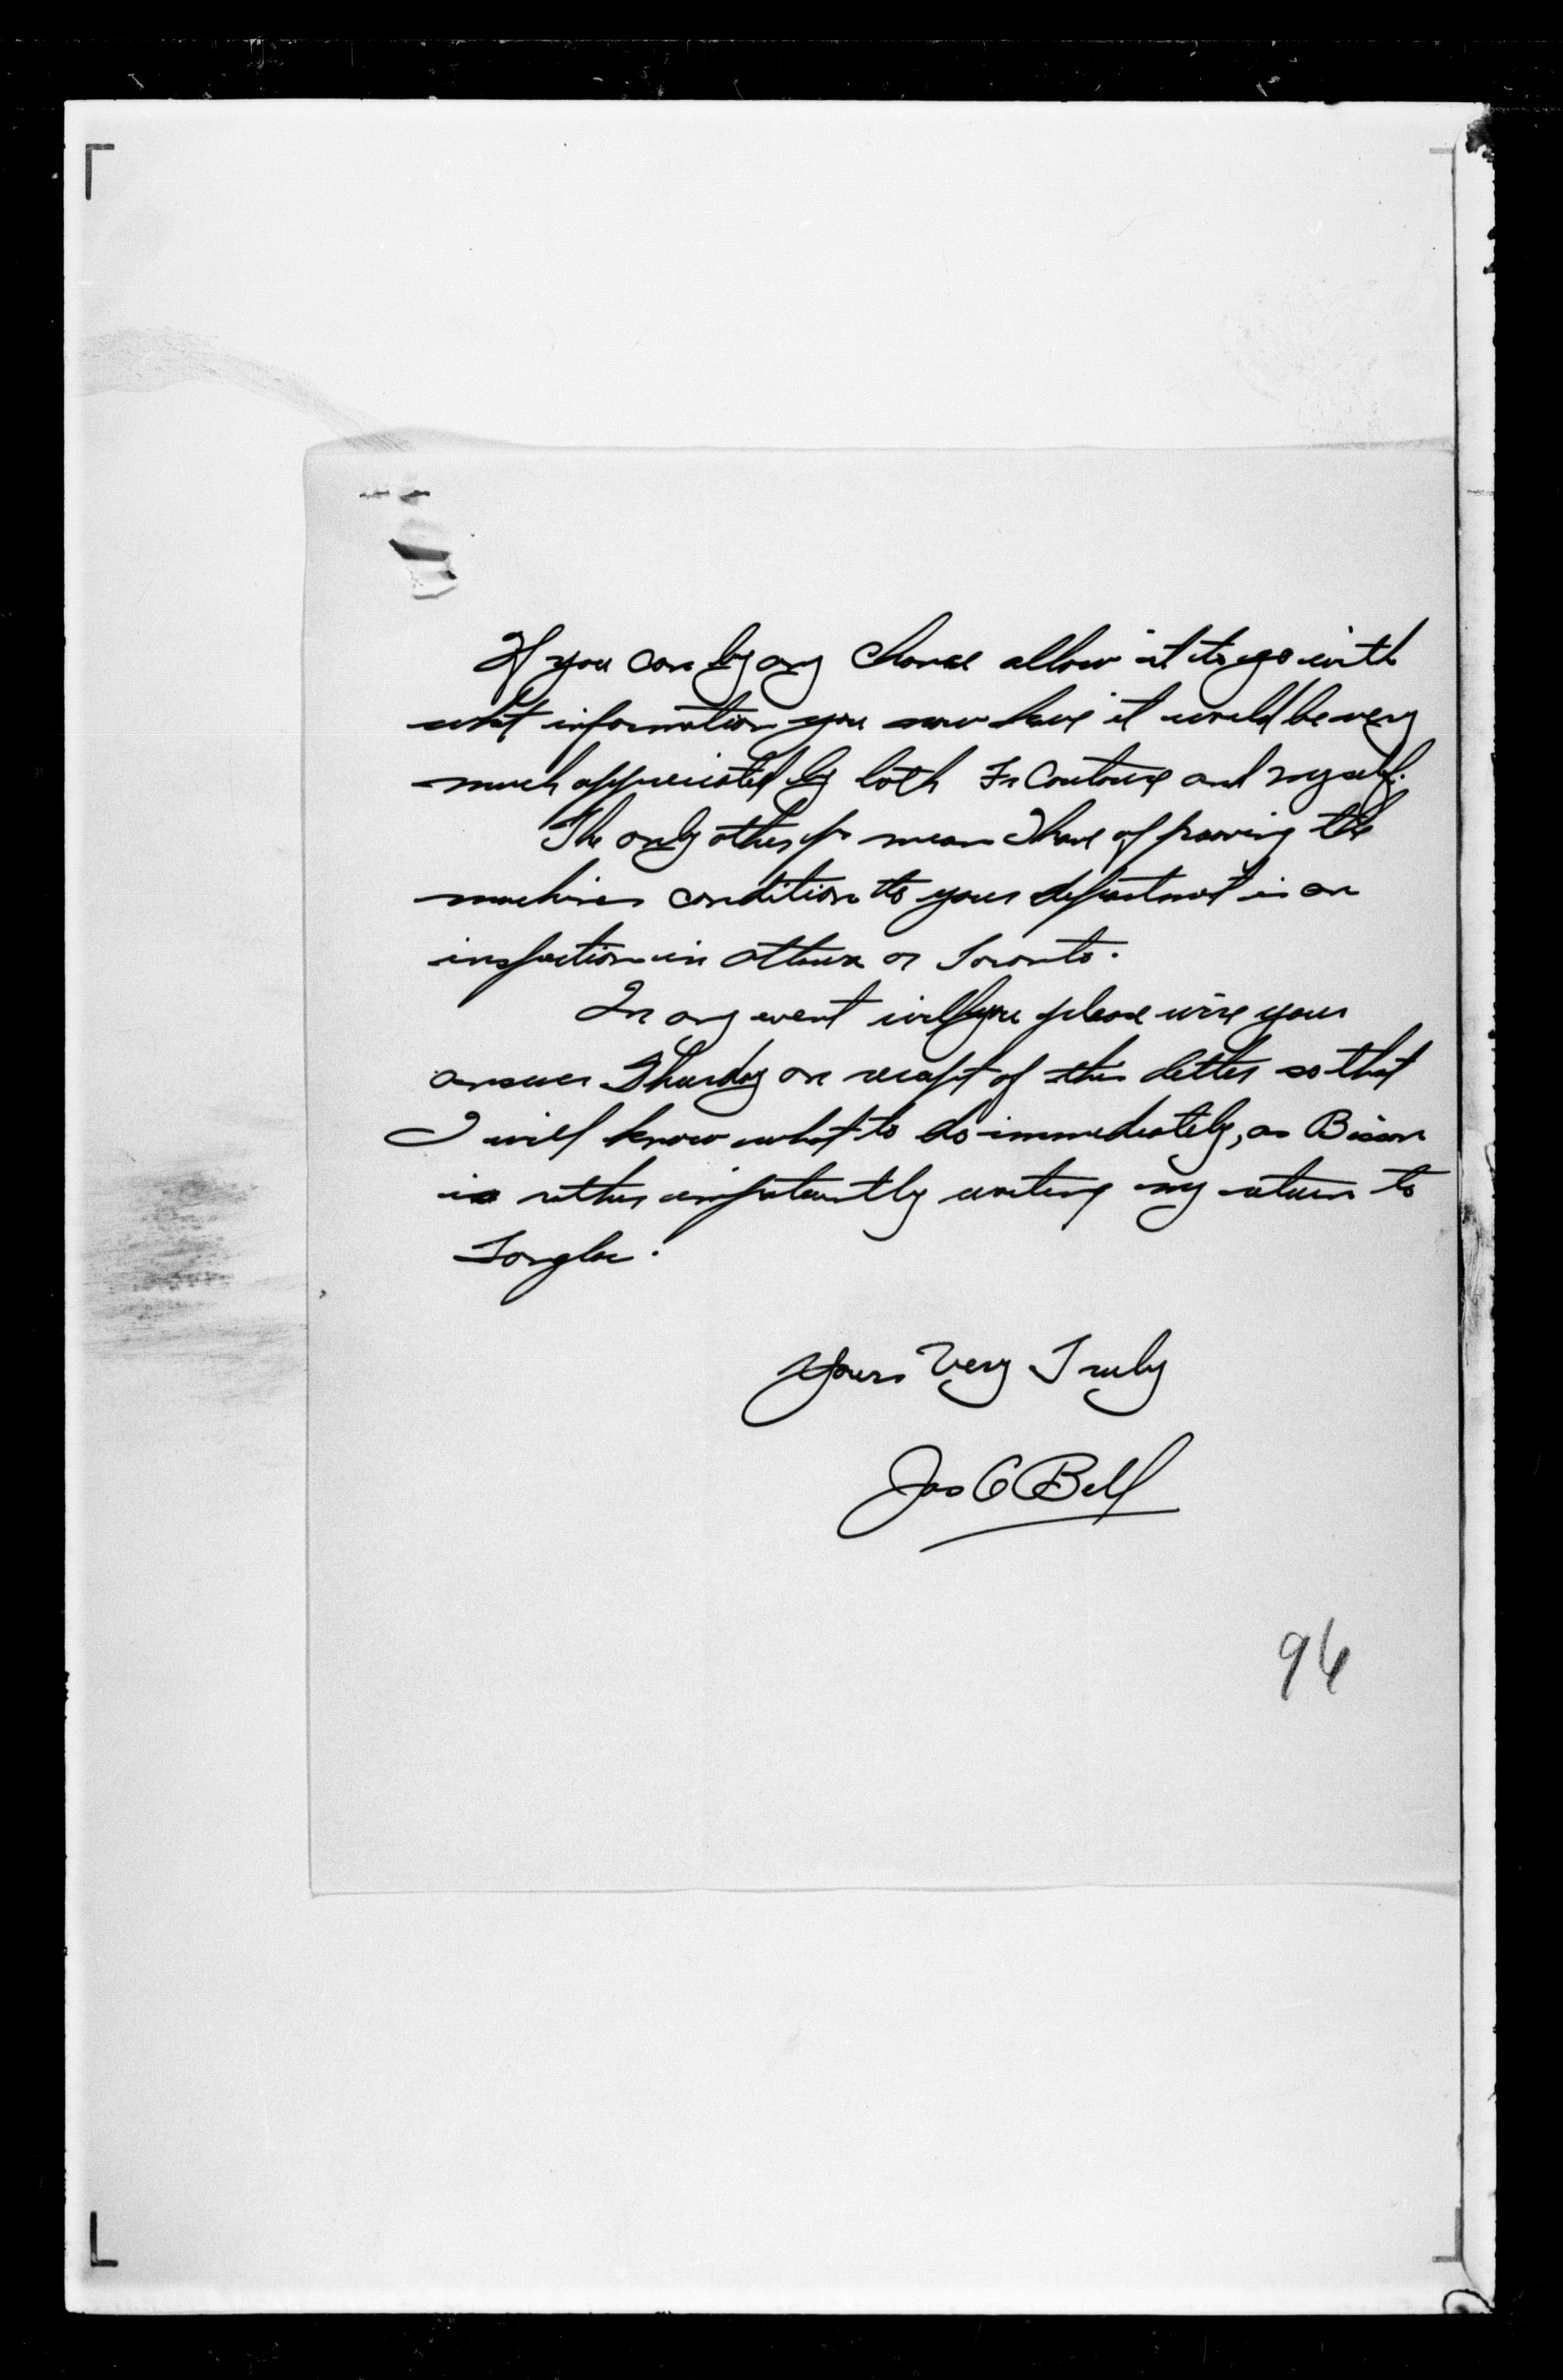 If you can by any chance allow it to go with
what information you now have it would be very
much appreciated by both Fr Couture and myself.
The only other means I have of proving the
machines condition to your department is an
inspection in Ottawa or Toronto.
In any event will you please wire your
answer Thursday on receipt of this letter so that
I will know what to do immediately, as Bison
is rather impatiently waiting my return to
Longlac.
Yours Very Truly
Jas C Bell
96